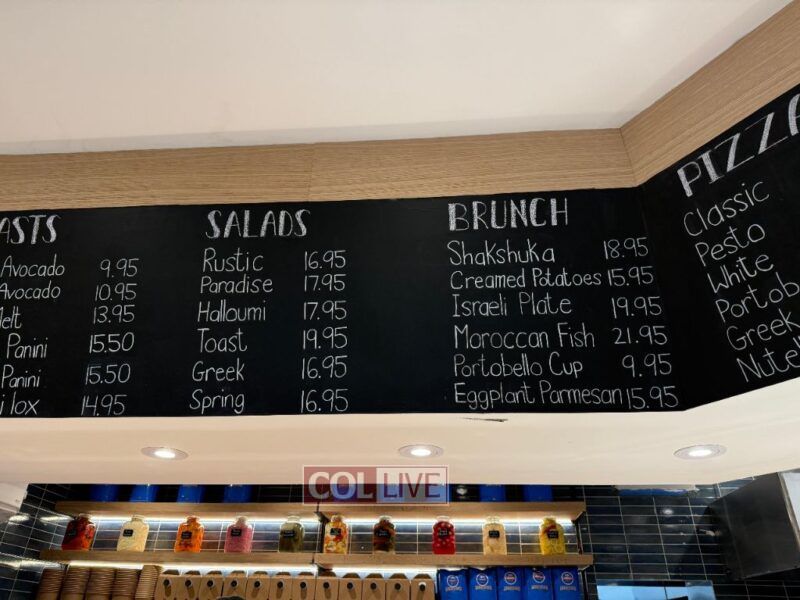 ASTS
Avocado 9.95
Avocado 10.95
elt 13.95
Panini 15.50
Panini 15.50
i lox 14.95
SALADS
Rustic 16.95
Paradise 17.95
Halloumi 17.95
Toast 19.95
Greek 16.95
Spring 16.95
BRUNCH
Shakshuka 18.95
Creamed Potatoes 15.95
Israeli Plate 19.95
Moroccan Fish 21.95
Portobello Cup 9.95
Eggplant Parmesan 15.95
PIZZA
Classic
Pesto
White
Portob
Greek
Nutell
COL LIVE